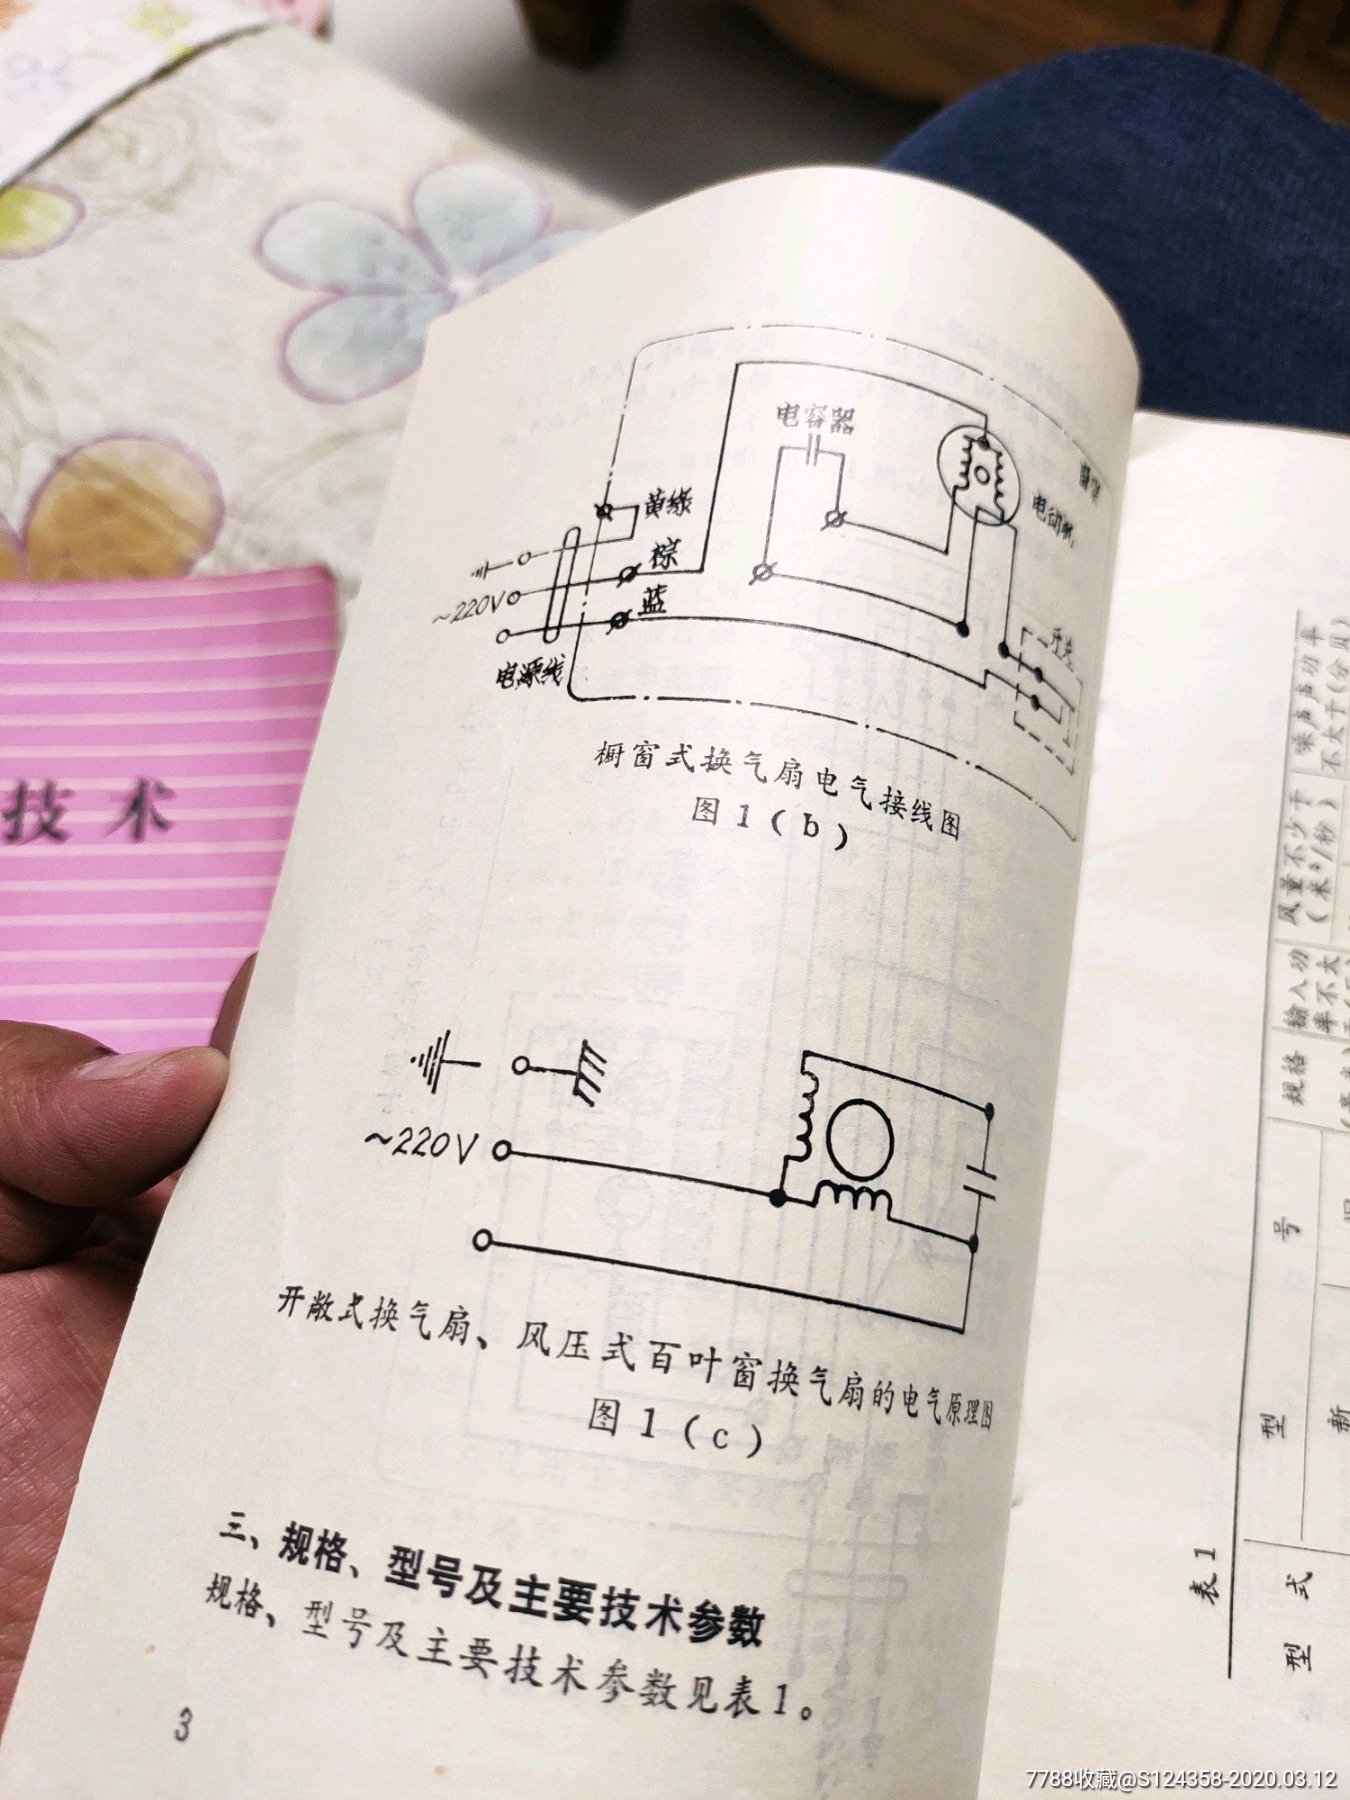 电容器
黄绿
棕
蓝
~220V
电源线
电动机
开关
橱窗式换气扇电气接线图
图1(b)
~220V
开敞式换气扇、风压式百叶窗换气扇的电气原理图
图1(c)
三、规格、型号及主要技术参数
规格、型号及主要技术参数见表1。
3
技术
表1
型式
型号
新
规格
输入功
率不大
风量不少于
(米³/秒)
噪声声功率
不大于(分贝)
7788收藏@S124358-2020.03.12